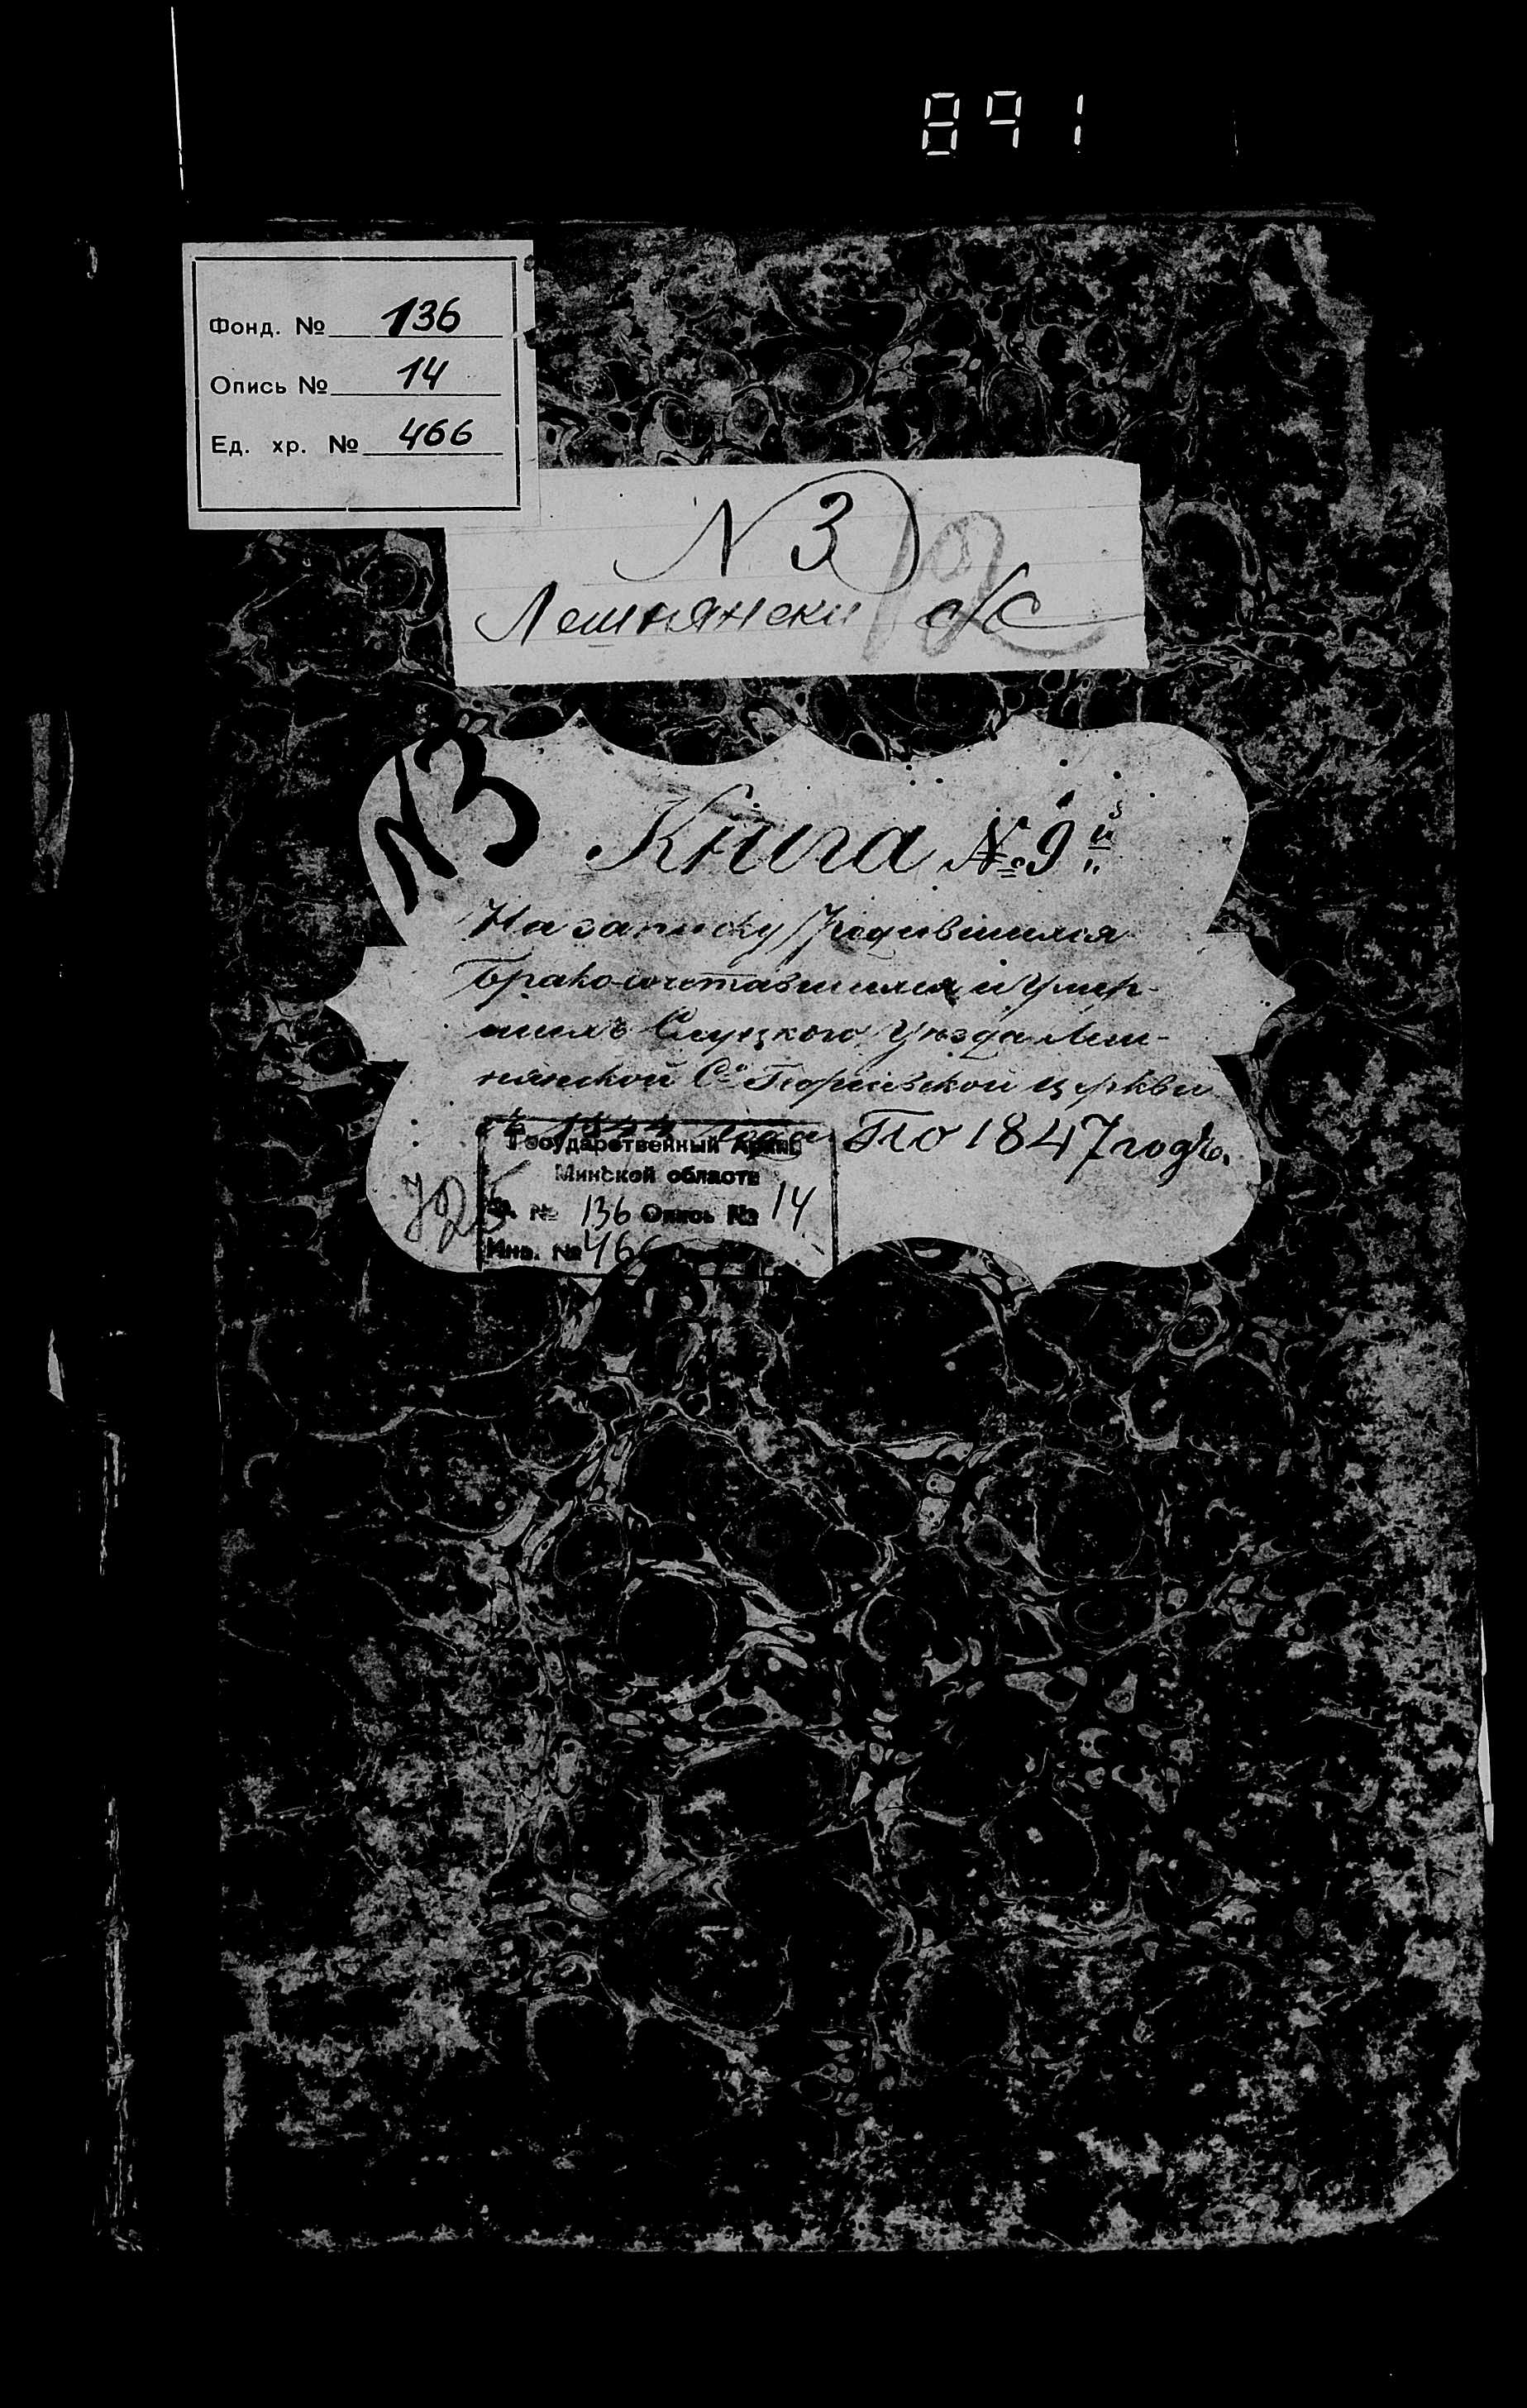 891
Фонд. № 136
Опись № 14
Ед. хр. № 466
N 3
12
Лешнянски с/с
N3
Книга №9й
На записку Родившихся
Бракосочетавшихся и Умер-
шихъ Слуцкого Уезда Леш-
нянской Сто Георгіевской Церкви
По 1847 годъ.
Государственный Архив
Минской области
Ф. № 136 Опись № 14
Инв. № 466